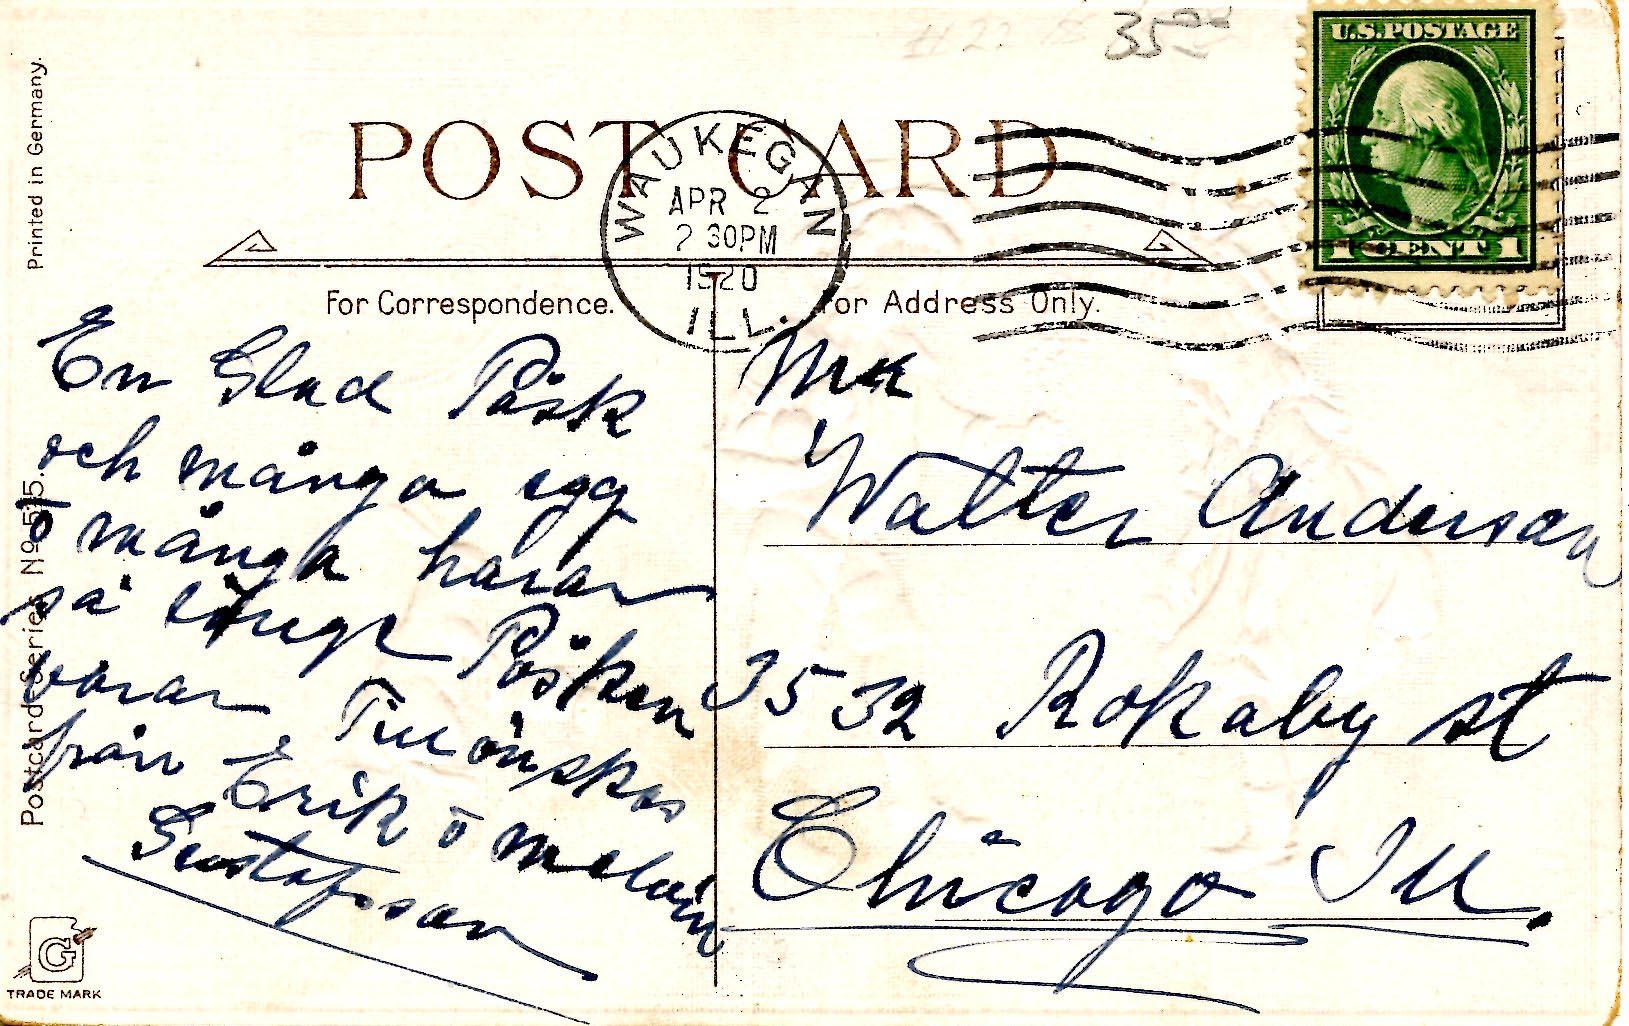 35.00
U.S.POSTAGE
1 CENT 1
Printed in Germany.
POST CARD
WAUKEGAN
APR 2
2 30PM
1920
ILL.
For Correspondence.
For Address Only.
En Glad Påsk
och många egg
o många harar
så länge Påsken
varar Tillönskas
från Erik o Melvin
Gustafsson
Mr
Walter Anderson
3532 Rokaby st
Chicago Ill.
Postcard Series No 515.
G
TRADE MARK